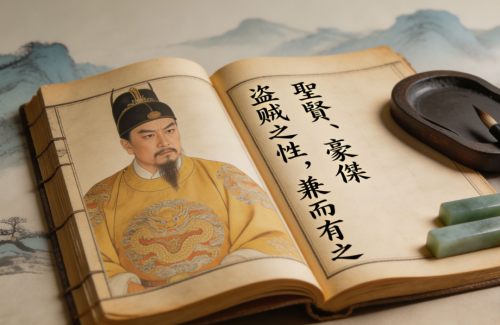 聖賢、豪傑
盜賊之性，兼而有之